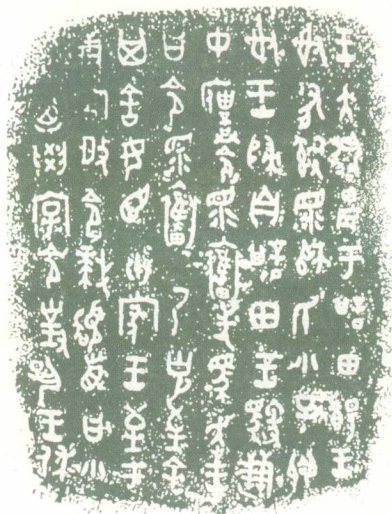 王大耤農于諆田餳王
射有𤔲眔師氏小子
射王歸自諆田王馭溓
中僕令眔奮先馬走王
曰令眔奮乃克至余
其舍女臣卅家王至于
溓宮令拜稽首曰小
子迺學令對揚王休